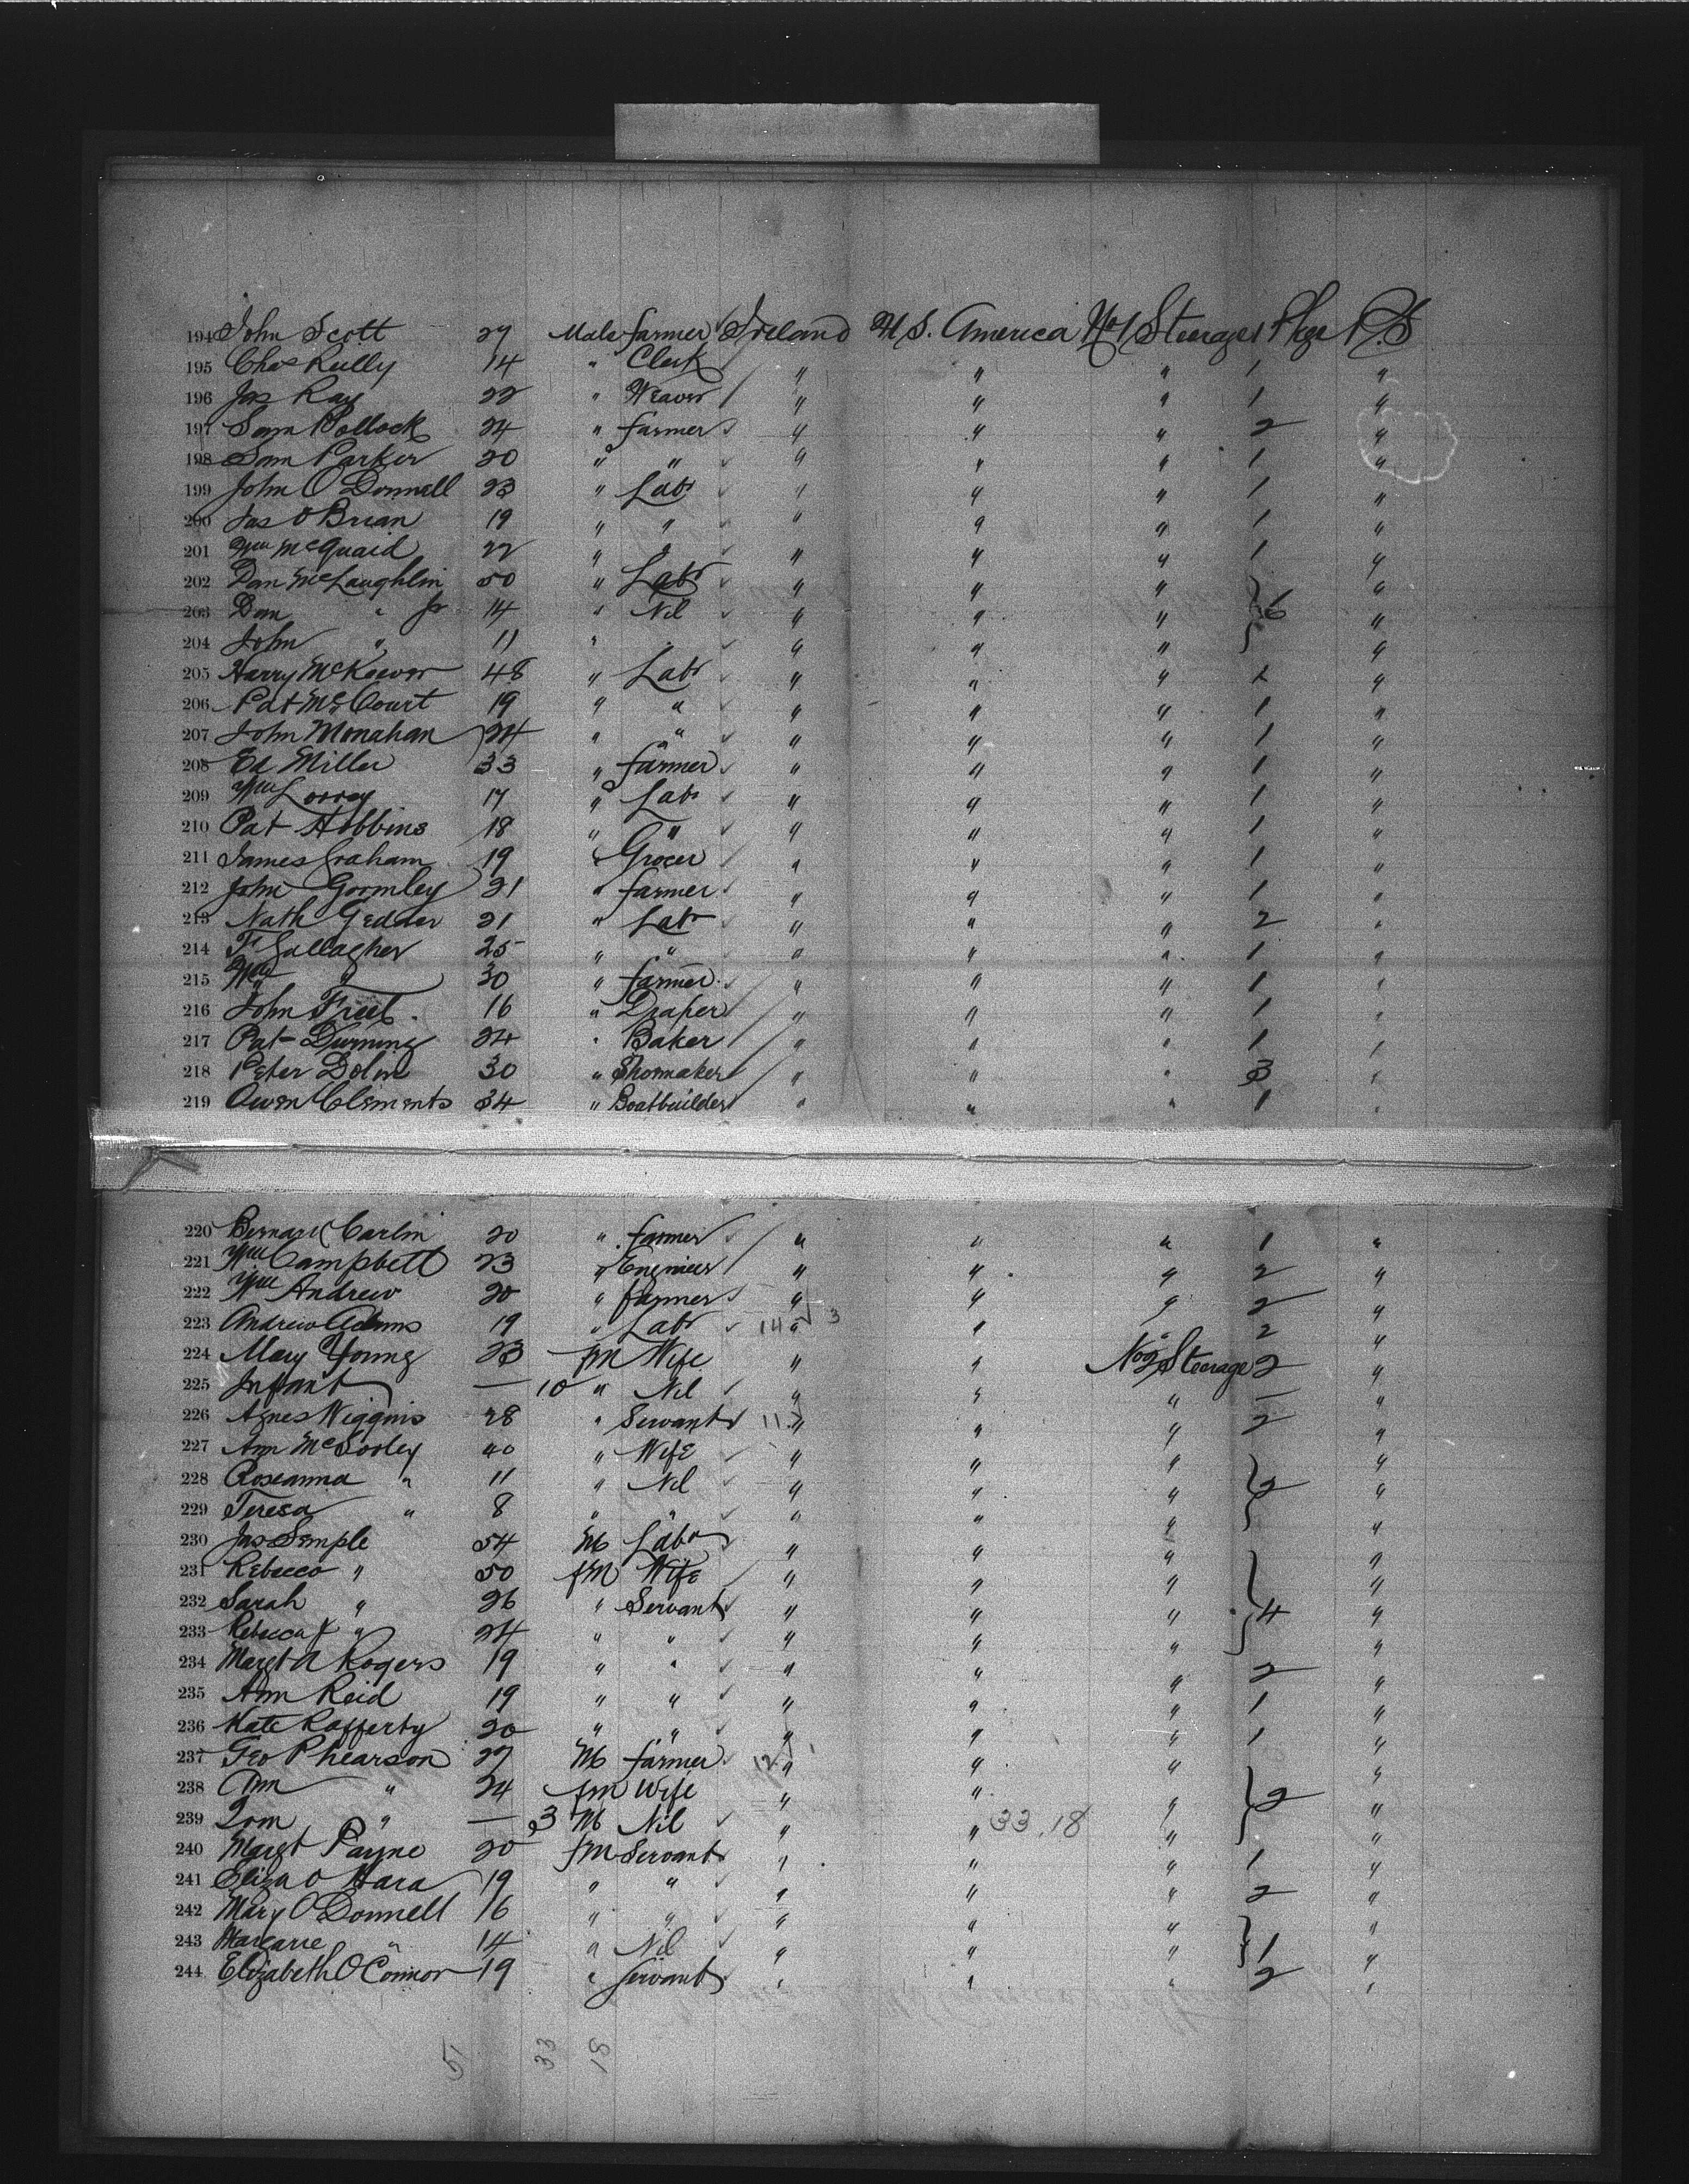 194 John Scott 27 Male Farmer Ireland U.S. America No 1 Steerage 1 Pkge N.Y.
195 Chas Reilly 14 " Clerk " " " 1 "
196 Jas Ray 22 " Weaver " " " 1 "
197 Sam Pollock 24 " Farmer " " " 2 "
198 Sam Parker 20 " " " " " 1 "
199 John O'Donnell 23 " Labr " " " 1 "
200 Jas O'Brian 19 " " " " " 1 "
201 Wm McQuaid 22 " " " " " 1 "
202 Dan McLaughlin 50 " Labr " " " "
203 Dan " Jr 14 " Nil " " " 6 "
204 John " 11 " " " " " "
205 Harry McKeever 48 " Labr " " " "
206 Pat McCourt 19 " " " " " 1 "
207 John Monahan 24 " " " " " 1 "
208 Ed Miller 33 " Farmer " " " 1 "
209 Wm 17 " Labr " " " 1 "
210 Pat 18 " " " " " 1 "
211 James Graham 19 " Grocer " " " 1 "
212 John Gormley 21 " Farmer " " " 1 "
213 Nath 21 " Labr " " " 2 "
214 F Gallagher 25 " " " " " 1 "
215 Wm " 30 " Farmer " " " 1 "
216 John Freel 16 " Draper " " " 1 "
217 Pat 24 " Baker " " " 1 "
218 Peter Dolin 30 " Shomaker " " " 3 "
219 Owen Clements 34 " Boatbuilder " " " 1 "
220 Bernard Carlin 20 " Farmer " " " 1 "
221 Wm Campbell 23 " Engineer " " " 2 "
222 Wm Andrew 20 " Farmer " " " 2 "
223 Andrew Adams 19 " Labr 14 " 3 " " 2 "
224 Mary Young 23 fM Wife " " No 2 Steerage 2 "
225 Infant — 10 " Nil " " " — "
226 Agnes Wiggins 28 " Servant 11 " " " 2 "
227 Ann McSorley 40 " Wife " " " "
228 Roseanna " 11 " Nil " " " 2 "
229 Teresa " 8 " " " " " "
230 Jas Semple 54 M Labr " " " "
231 Rebecca " 50 fM Wife " " " "
232 Sarah " 26 " Servant " " " 4 "
233 Rebecca J " 24 " " " " " "
234 Margt A Rogers 19 " " " " " 2 "
235 Ann Reid 19 " " " " " 1 "
236 Kate Rafferty 20 " " " " " 1 "
237 Geo Phearson 27 M Farmer 12 1 " " " "
238 Ann " 24 fm Wife " " " 2 "
239 Tom " — 3 M Nil " " 33.18 " "
240 Margt Payne 20 fM Servant " " " 1 "
241 Eliza O'Hara 19 " " " " " 2 "
242 Mary O'Donnell 16 " " " " " "
243 " 14 " Nil " " " 1 "
244 Elizabeth O'Connor 19 " Servant " " " 2 "
51 33 18